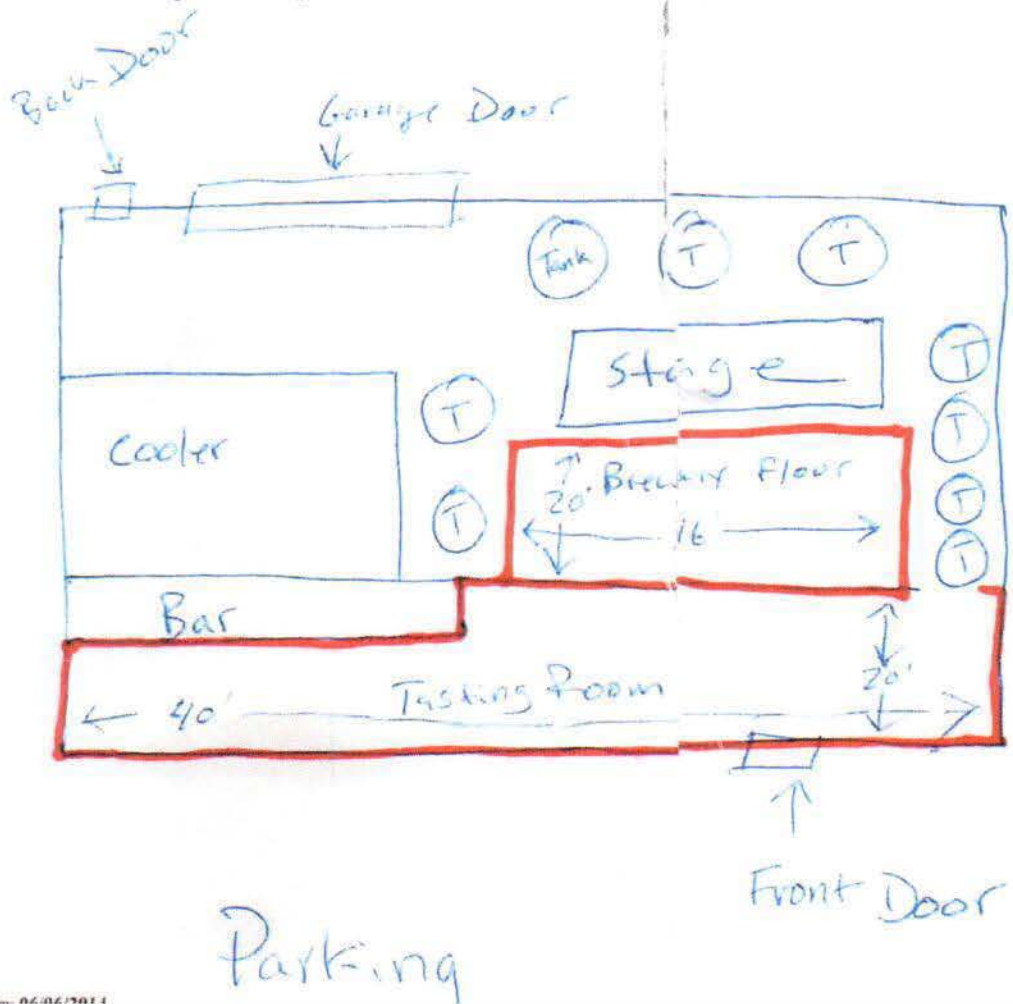 Back Door
Garage Door
Tank
T
T
Stage
T
T
T
Cooler
20' Brewery Floor
16'
T
T
T
Bar
Tasting Room
40'
20'
Front Door
Parking
06/06/2014